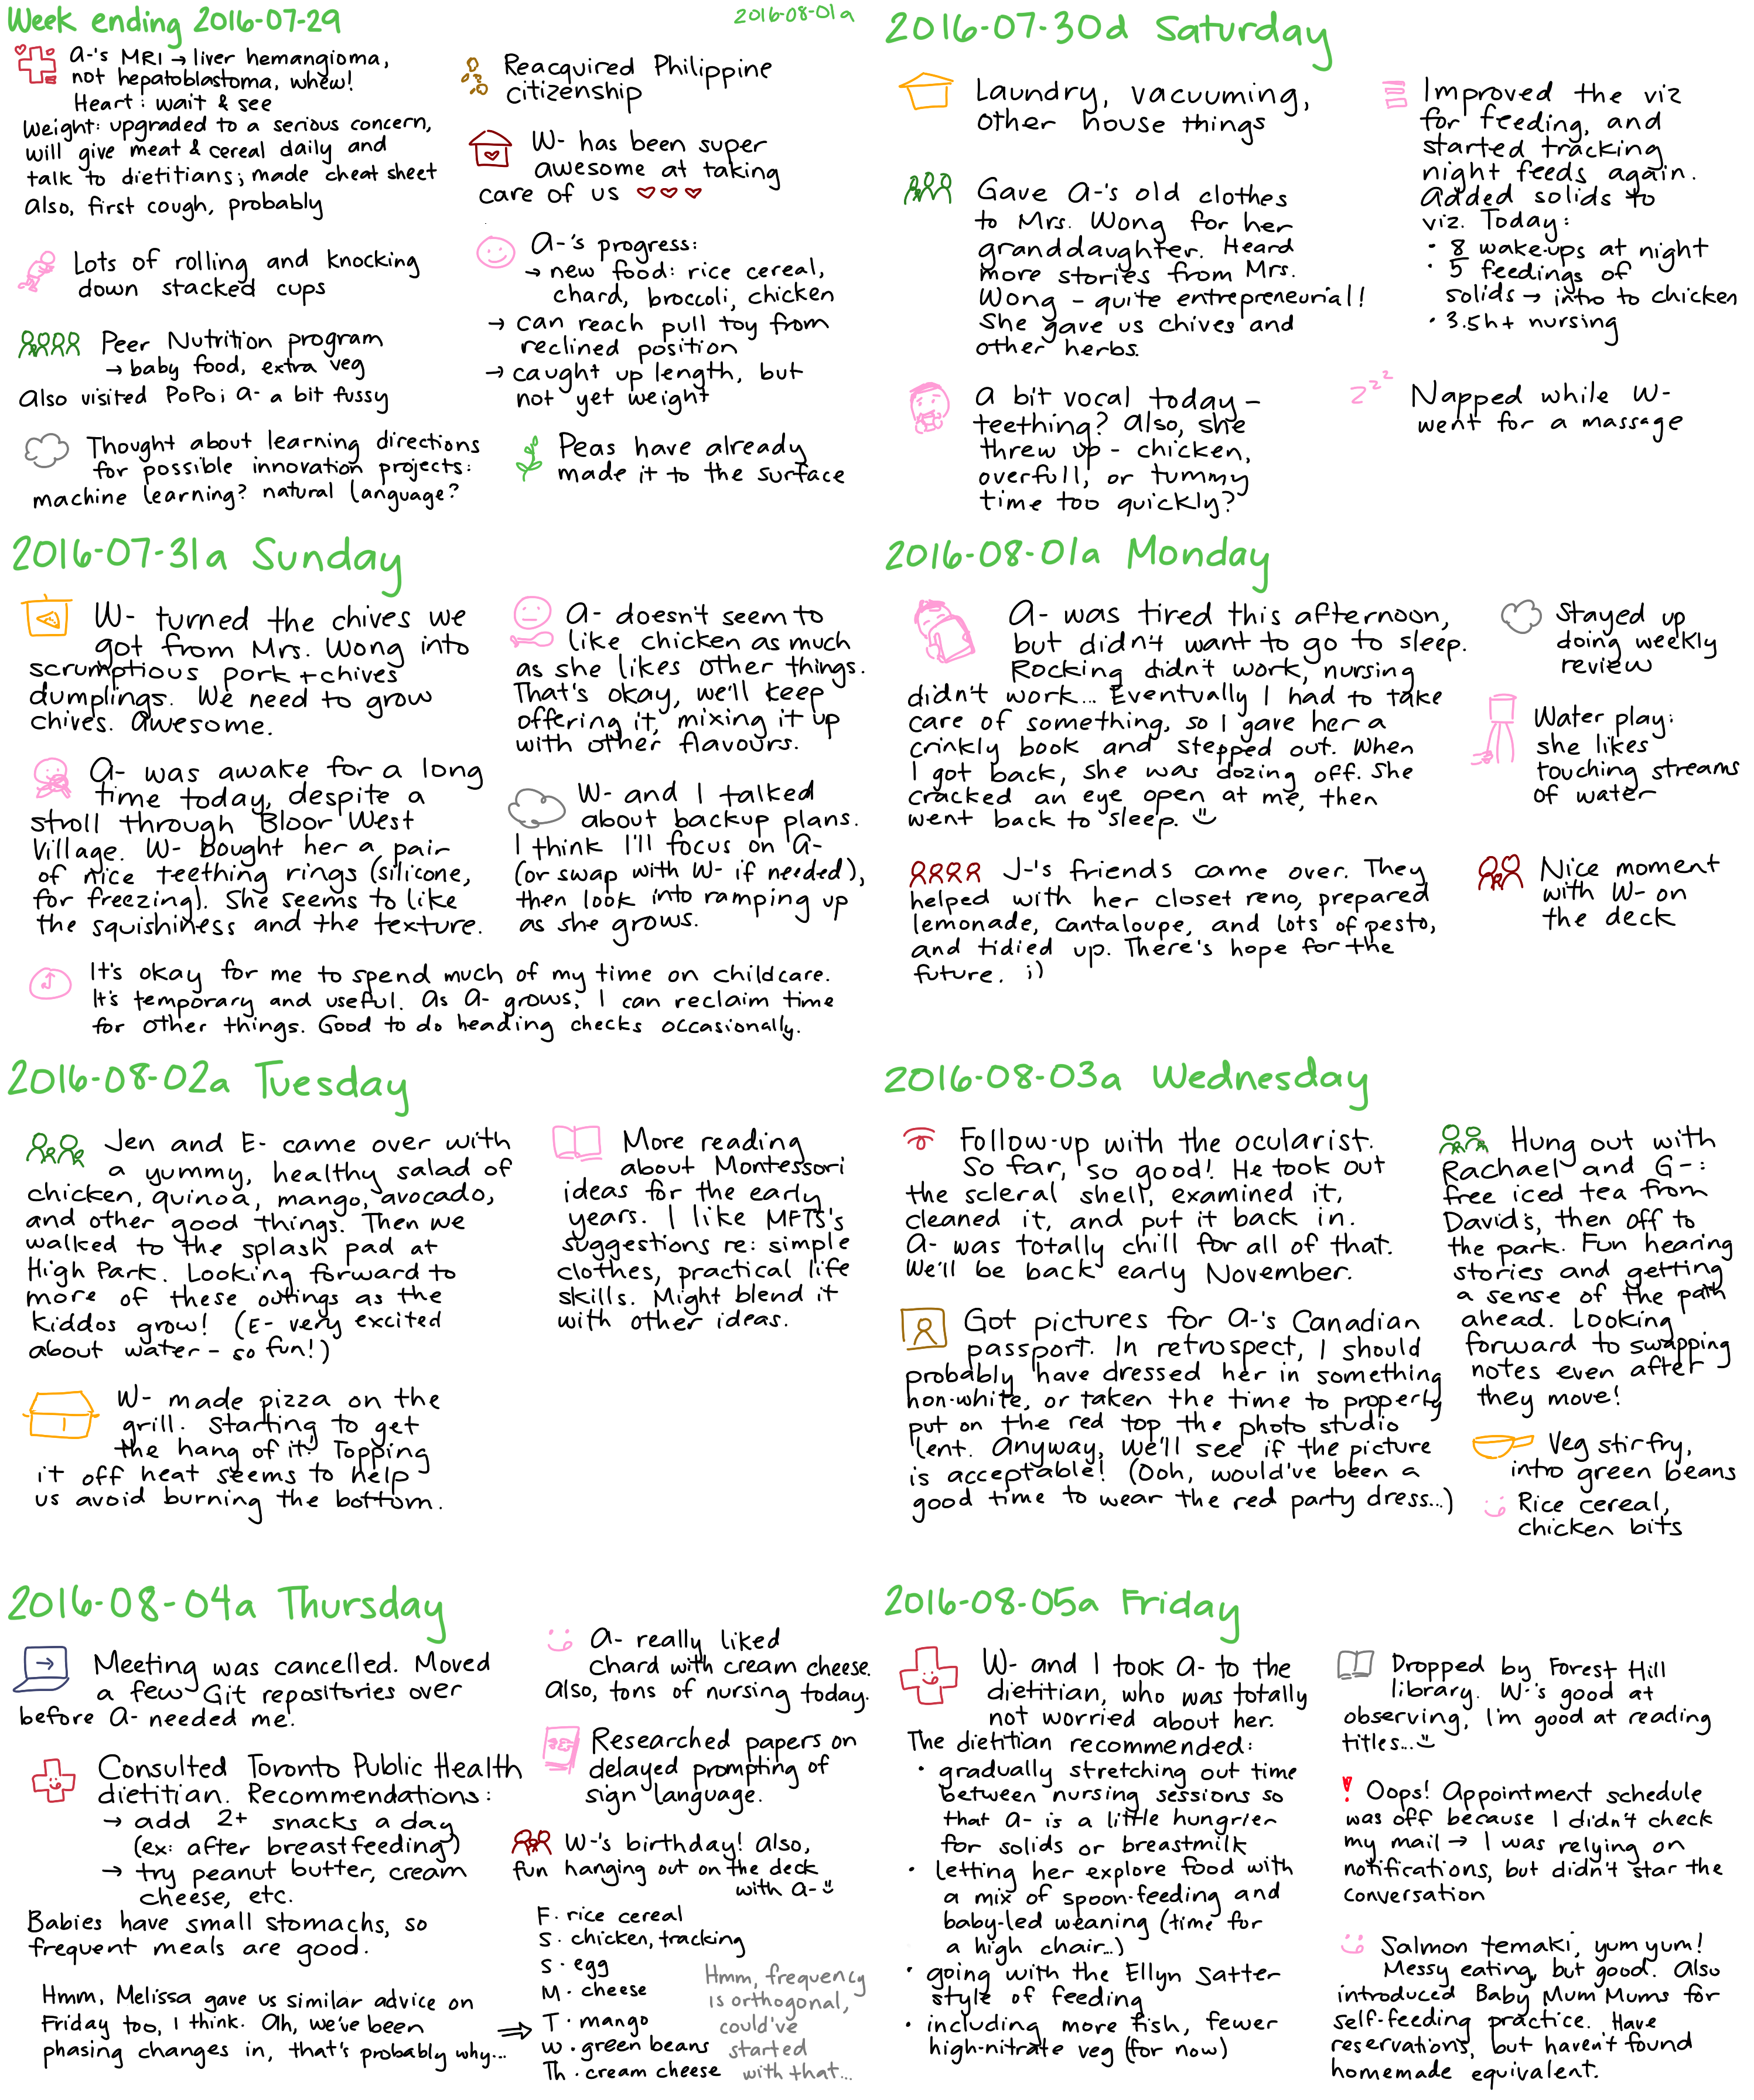 Week ending 2016-07-29
2016-08-01a
A-'s MRI → liver hemangioma,
not hepatoblastoma, whew!
Heart: wait & see
Weight: upgraded to a serious concern,
will give meat & cereal daily and
talk to dietitians; made cheat sheet
Also, first cough, probably
Lots of rolling and knocking
down stacked cups
Peer Nutrition program
→ baby food, extra veg
Also visited PoPo; A- a bit fussy
Thought about learning directions
for possible innovation projects:
machine learning? natural language?
Reacquired Philippine
citizenship
W- has been super
awesome at taking
care of us ♡♡♡
A-'s progress:
→ new food: rice cereal,
chard, broccoli, chicken
→ can reach pull toy from
reclined position
→ caught up length, but
not yet weight
Peas have already
made it to the surface
2016-07-30d Saturday
Laundry, vacuuming,
other house things
Gave A-'s old clothes
to Mrs. Wong for her
granddaughter. Heard
more stories from Mrs.
Wong - quite entrepreneurial!
She gave us chives and
other herbs.
A bit vocal today -
teething? Also, she
threw up - chicken,
overfull, or tummy
time too quickly?
Improved the viz
for feeding, and
started tracking
night feeds again.
Added solids to
viz. Today:
• 8 wake-ups at night
• 5 feedings of
solids → intro to chicken
• 3.5h+ nursing
zzz
Napped while W-
went for a massage
2016-07-31a Sunday
W- turned the chives we
got from Mrs. Wong into
scrumptious pork+chives
dumplings. We need to grow
chives. Awesome.
A- was awake for a long
time today, despite a
stroll through Bloor West
Village. W- bought her a pair
of nice teething rings (silicone,
for freezing). She seems to like
the squishiness and the texture.
A- doesn't seem to
like chicken as much
as she likes other things.
That's okay, we'll keep
offering it, mixing it up
with other flavours.
W- and I talked
about backup plans.
I think I'll focus on A-
(or swap with W- if needed),
then look into ramping up
as she grows.
It's okay for me to spend much of my time on childcare.
It's temporary and useful. As A- grows, I can reclaim time
for other things. Good to do heading checks occasionally.
2016-08-01a Monday
A- was tired this afternoon,
but didn't want to go to sleep.
Rocking didn't work, nursing
didn't work... Eventually I had to take
care of something, so I gave her a
crinkly book and stepped out. When
I got back, she was dozing off. She
cracked an eye open at me, then
went back to sleep. :)
J-'s friends came over. They
helped with her closet reno, prepared
lemonade, cantaloupe, and lots of pesto,
and tidied up. There's hope for the
future. ;)
Stayed up
doing weekly
review
Water play:
she likes
touching streams
of water
Nice moment
with W- on
the deck
2016-08-02a Tuesday
Jen and E- came over with
a yummy, healthy salad of
chicken, quinoa, mango, avocado,
and other good things. Then we
walked to the splash pad at
High Park. Looking forward to
more of these outings as the
kiddos grow! (E- very excited
about water - so fun!)
W- made pizza on the
grill. Starting to get
the hang of it! Topping
it off heat seems to help
us avoid burning the bottom.
More reading
about Montessori
ideas for the early
years. I like MFTS's
suggestions re: simple
clothes, practical life
skills. Might blend it
with other ideas.
2016-08-03a Wednesday
Follow-up with the ocularist.
So far, so good! He took out
the scleral shell, examined it,
cleaned it, and put it back in.
A- was totally chill for all of that.
We'll be back early November.
Got pictures for A-'s Canadian
passport. In retrospect, I should
probably have dressed her in something
non-white, or taken the time to properly
put on the red top the photo studio
lent. Anyway, we'll see if the picture
is acceptable! (Ooh, would've been a
good time to wear the red party dress...)
Hung out with
Rachael and G-:
free iced tea from
David's, then off to
the park. Fun hearing
stories and getting
a sense of the path
ahead. Looking
forward to swapping
notes even after
they move!
Veg stir fry,
intro green beans
Rice cereal,
chicken bits
2016-08-04a Thursday
Meeting was cancelled. Moved
a few Git repositories over
before A- needed me.
Consulted Toronto Public Health
dietitian. Recommendations:
→ add 2+ snacks a day
(ex: after breastfeeding)
→ try peanut butter, cream
cheese, etc.
Babies have small stomachs, so
frequent meals are good.
Hmm, Melissa gave us similar advice on
Friday too, I think. Ah, we've been
phasing changes in, that's probably why... ⇒
A- really liked
chard with cream cheese.
Also, tons of nursing today.
Researched papers on
delayed prompting of
sign language.
W-'s birthday! Also,
fun hanging out on the deck
with A- :)
F · rice cereal
S · chicken, tracking
S · egg
M · cheese
T · mango
W · green beans
Th · cream cheese
Hmm, frequency
is orthogonal,
could've
started
with that...
2016-08-05a Friday
W- and I took A- to the
dietitian, who was totally
not worried about her.
The dietitian recommended:
• gradually stretching out time
between nursing sessions so
that A- is a little hungrier
for solids or breastmilk
• letting her explore food with
a mix of spoon-feeding and
baby-led weaning (time for
a high chair...)
• going with the Ellyn Satter
style of feeding
• including more fish, fewer
high-nitrate veg (for now)
Dropped by Forest Hill
library. W-'s good at
observing, I'm good at reading
titles... :)
! Oops! Appointment schedule
was off because I didn't check
my mail → I was relying on
notifications, but didn't star the
conversation
Salmon temaki, yum yum!
Messy eating, but good. Also
introduced Baby Mum Mums for
self-feeding practice. Have
reservations, but haven't found
homemade equivalent.